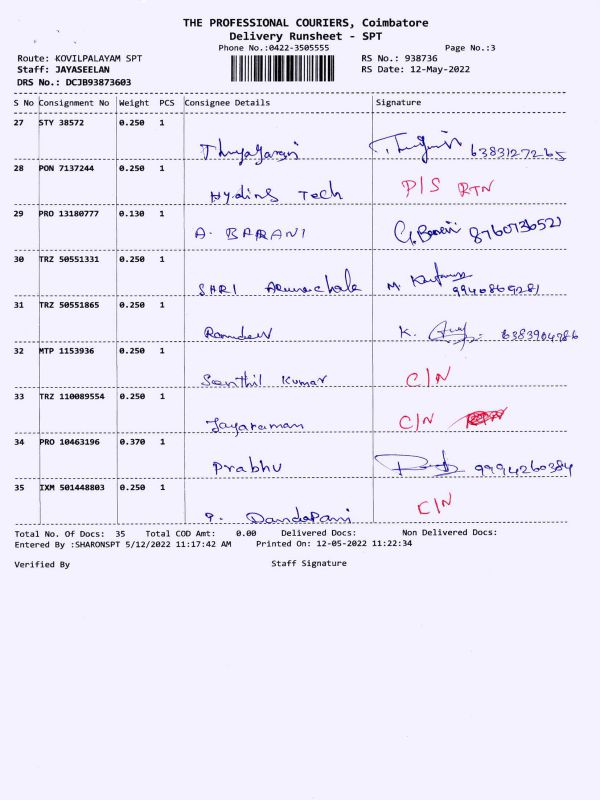 THE PROFESSIONAL COURIERS, Coimbatore
Delivery Runsheet - SPT
Phone No.:0422-3505555 Page No.:3
Route: KOVILPALAYAM SPT RS No.: 938736
Staff: JAYASEELAN RS Date: 12-May-2022
DRS No.: DCJB93873603
S No Consignment No Weight PCS Consignee Details Signature
27 STY 38572 0.250 1
Thyagarajan 6383127265
28 PON 7137244 0.250 1
Hydins Tech P/S RTN
29 PRO 13180777 0.130 1
A. BARANI G. Barani 8760736521
30 TRZ 50551331 0.250 1
SHRI Arunachala M. 9940869281
31 TRZ 50551865 0.250 1
Ramdev K. 6383904286
32 MTP 1153936 0.250 1
Senthil Kumar C/N
33 TRZ 110089554 0.250 1
Jayaraman C/N
34 PRO 10463196 0.370 1
Prabhu 9994260384
35 IXM 501448803 0.250 1
P. Dandapani C/N
Total No. Of Docs: 35 Total COD Amt: 0.00 Delivered Docs: Non Delivered Docs:
Entered By :SHARONSPT 5/12/2022 11:17:42 AM Printed On: 12-05-2022 11:22:34
Verified By Staff Signature